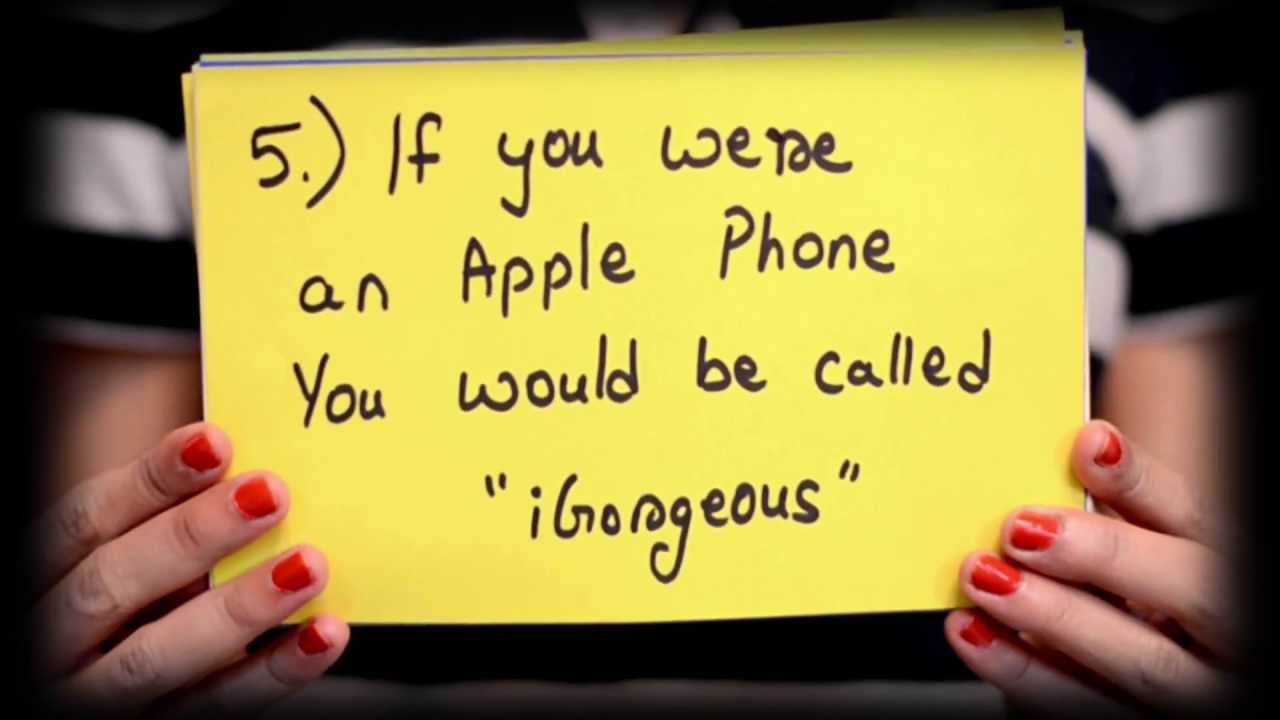 5.) If you were
an Apple Phone
You would be called
"iGorgeous"